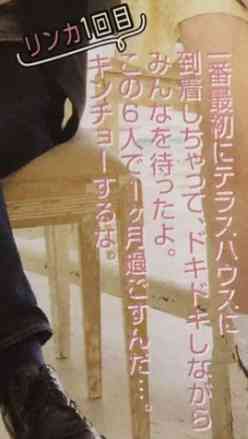 リンカ1回目
一番最初にテラスハウスに
到着しちゃって、ドキドキしながら
みんなを待ったよ。
この6人で1ヶ月過ごすんだ…。
キンチョーするな。